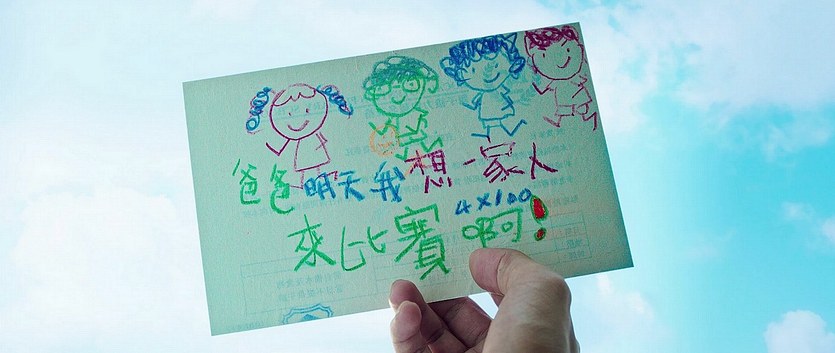 爸爸明天我想一家人
4×100
來比賽啊!